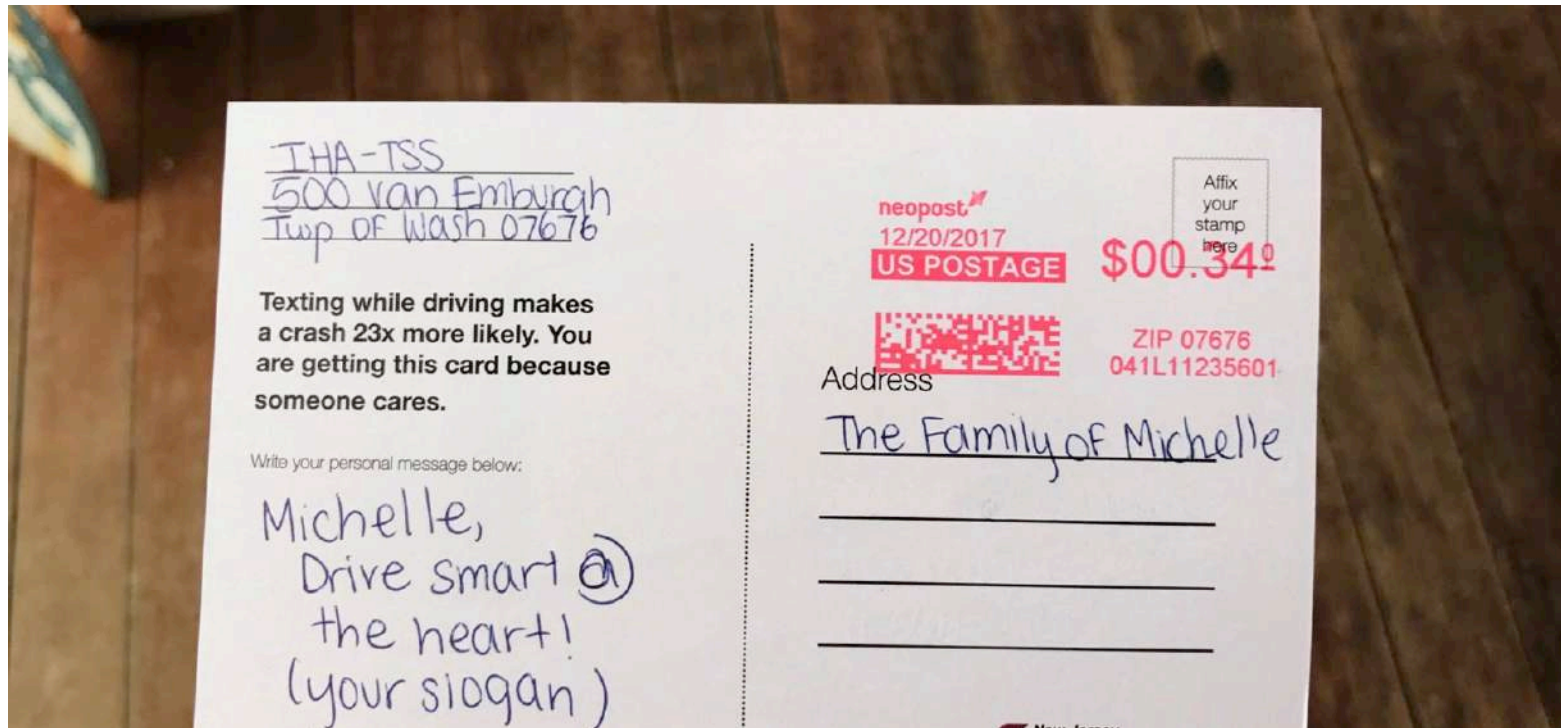 IHA-TSS
500 Van Emburgh
Twp OF Wash 07676
Texting while driving makes
a crash 23x more likely. You
are getting this card because
someone cares.
Write your personal message below:
Michelle,
Drive smart @
the heart!
(your slogan)
neopost
12/20/2017
US POSTAGE
$00.340
Affix
your
stamp
here
ZIP 07676
041L11235601
Address
The Family of Michelle
New Jersey